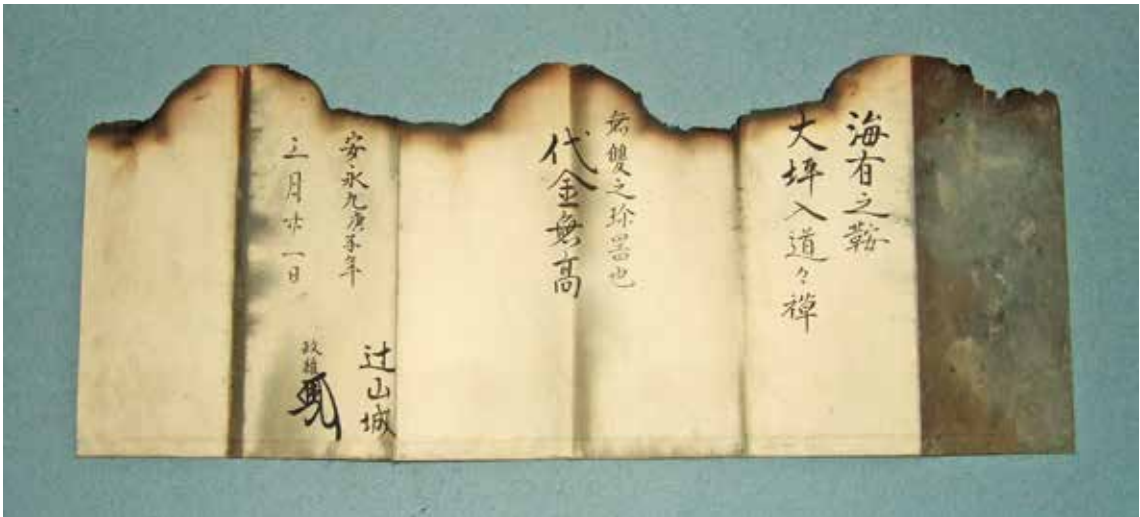 海有之鞍
大坪入道々禅
無雙之珎器也
代金無高
安永九庚子年
三月廿一日
辻山城
政